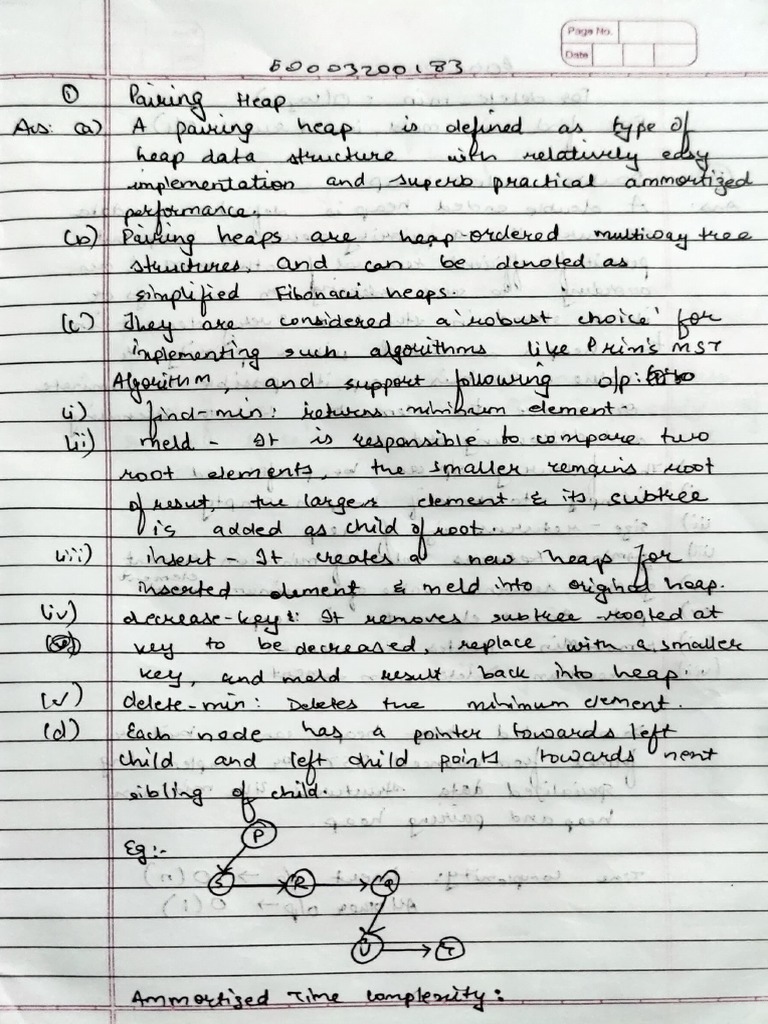 Page No.
Date
60003200183
① Pairing Heap
Ans: (a) A pairing heap is defined as type of
heap data structure with relatively easy
implementation and superb practical ammortized
performance.
(b) Pairing heaps are heap-ordered multiway tree
structures. and can be denoted as
simplified Fibonacci heaps.
(c) They are considered a 'robust choice' for
implementing such algorithms like Prim's MST
Algorithm, and support following o/p:
(i) find-min: returns minimum element.
(ii) meld - It is responsible to compare two
root elements, the smaller remains root
of result, the larger element & its subtree
is added as child of root.
(iii) insert - It creates a new heap for
inserted element & meld into original heap.
(iv) decrease-key: It removes subtree rooted at
key to be decreased, replace with a smaller
key, and meld result back into heap.
(v) delete-min: Deletes the minimum element.
(d) Each node has a pointer towards left
child and left child points towards next
sibling of child.
Eg:-
P
S R Q
U T
Ammortized Time Complexity: